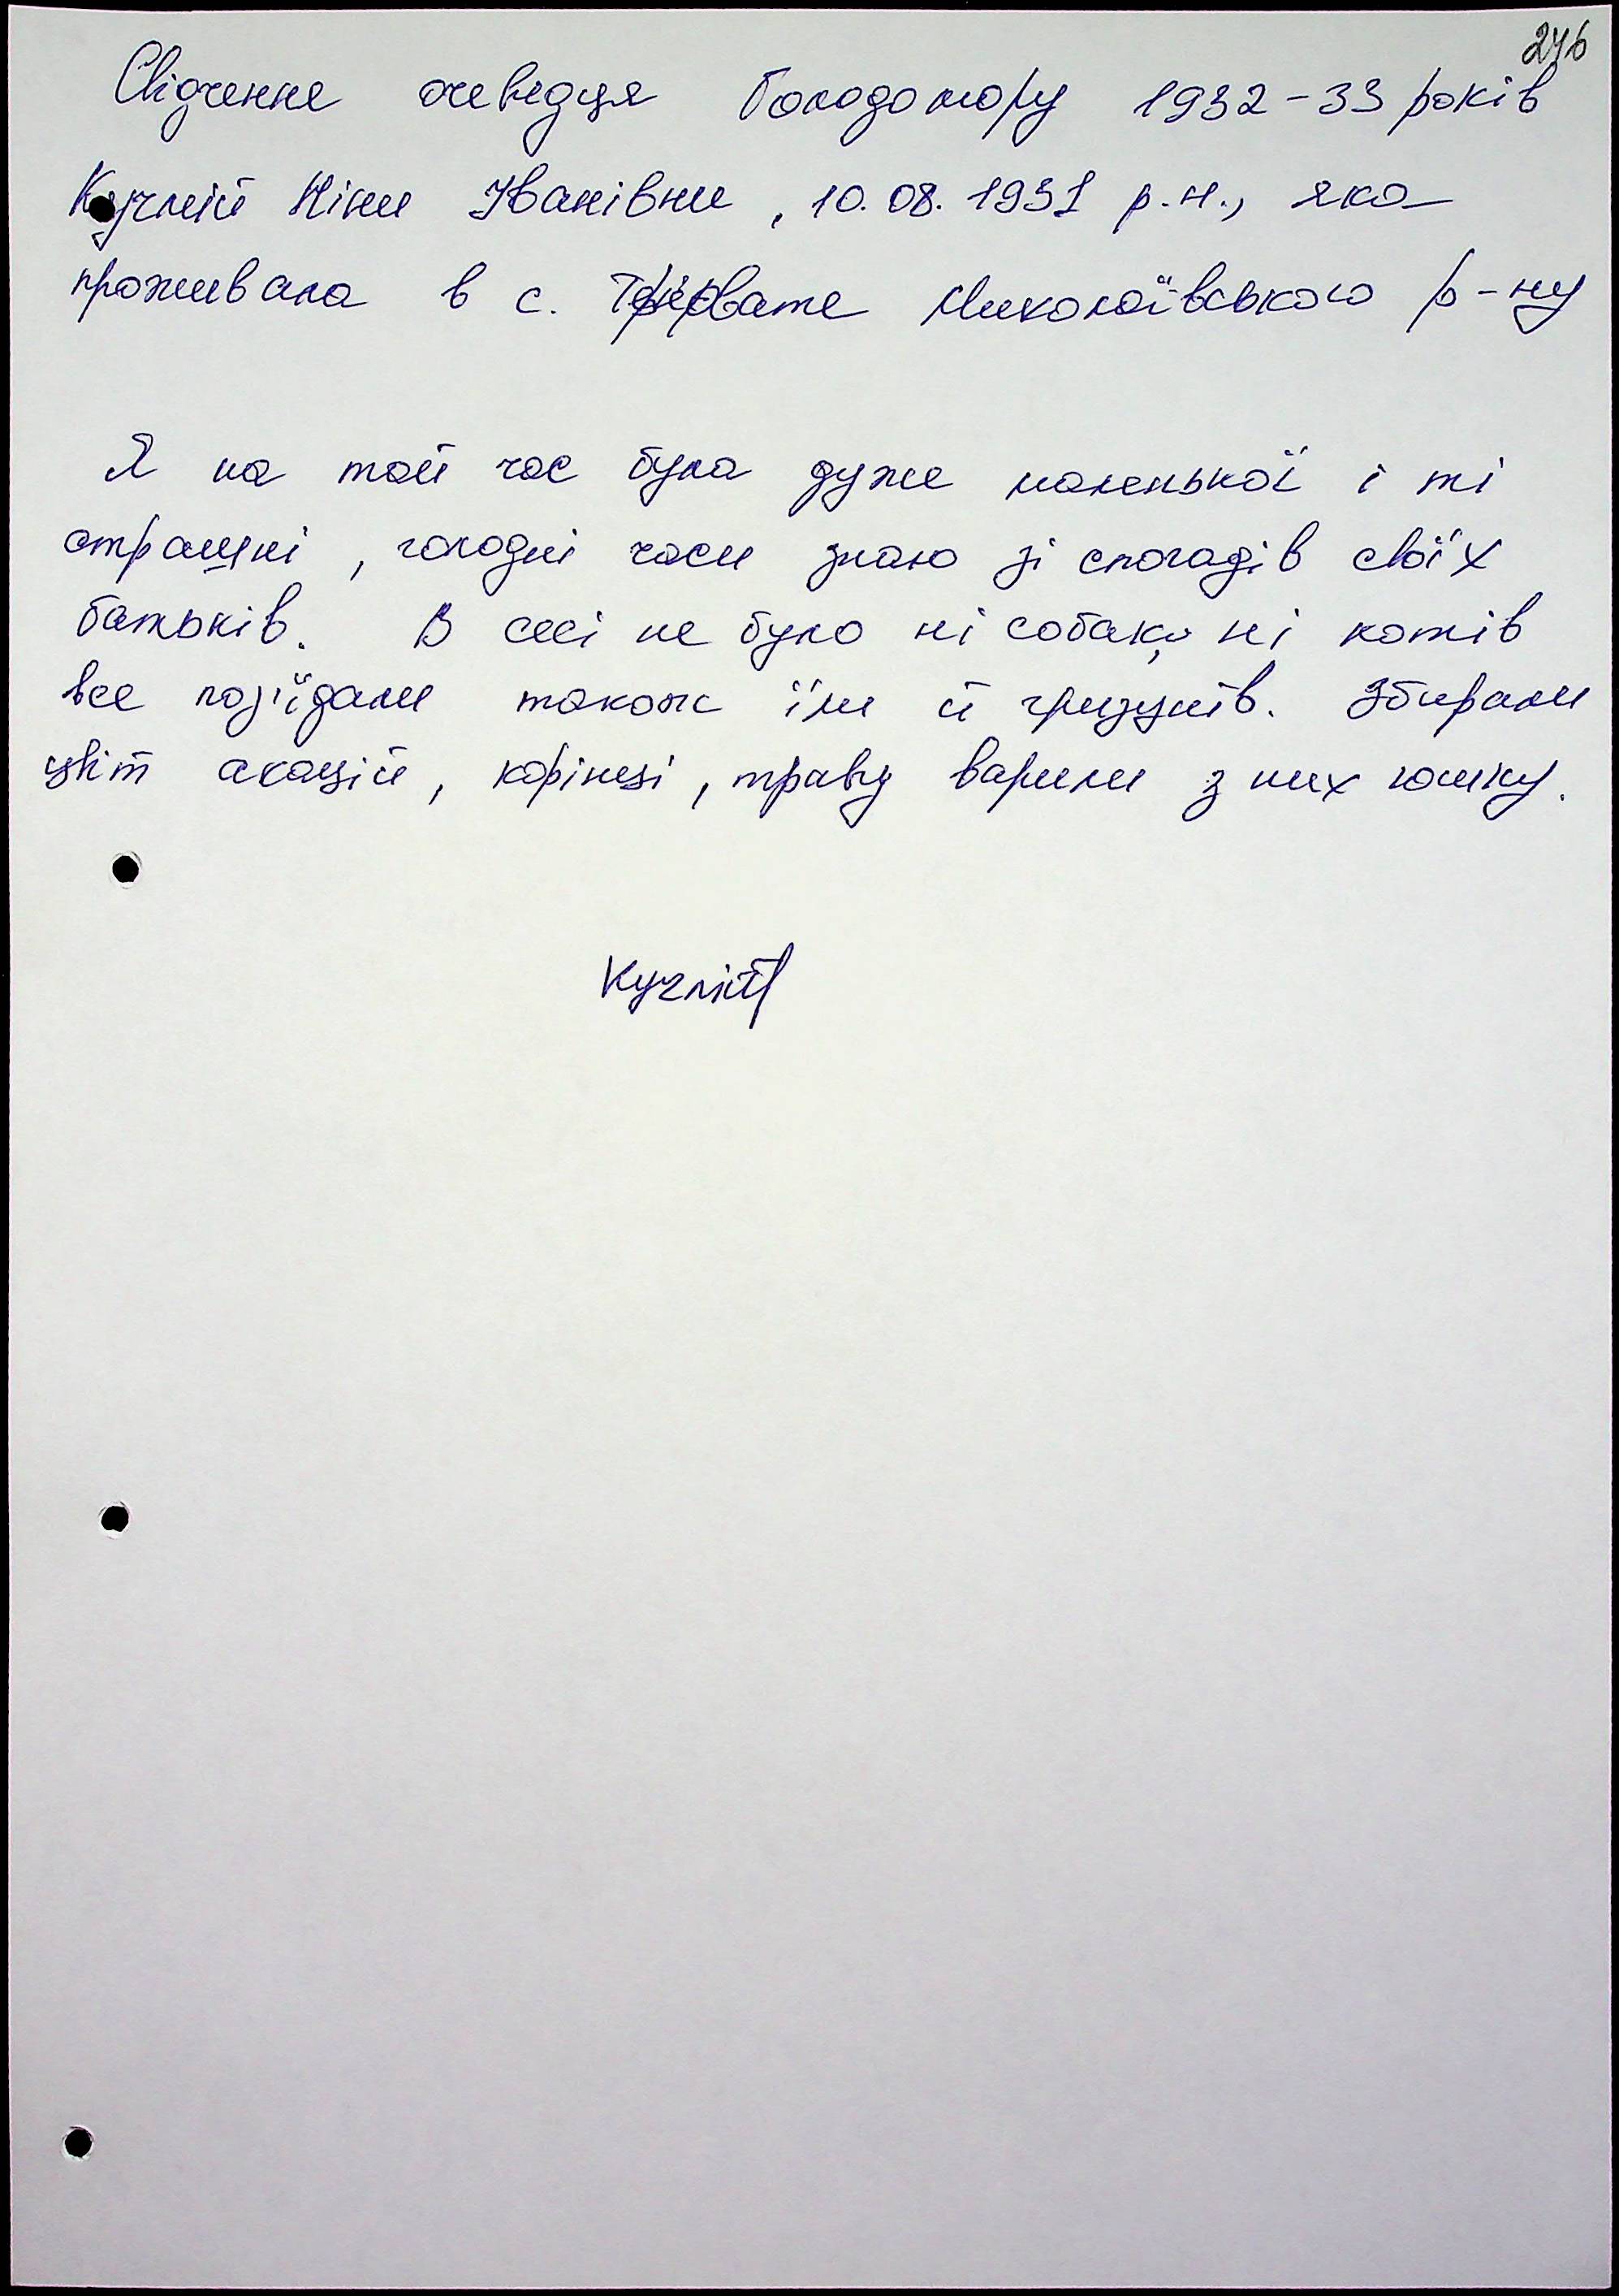 246
Свідчення очевидця Голодомору 1932-33 років
Кучмій Ніни Іванівни, 10.08.1931 р.н., яка
проживала в с. Миколаївського р-ну
Я на той час була дуже маленької і ті
страшні, голодні часи знаю зі спогадів своїх
батьків. В селі не було ні собак, ні котів
все поз'їдали також їли й гризунів. Збирали
цвіт акацій, корінці, траву варили з них юшку.
Кучмій